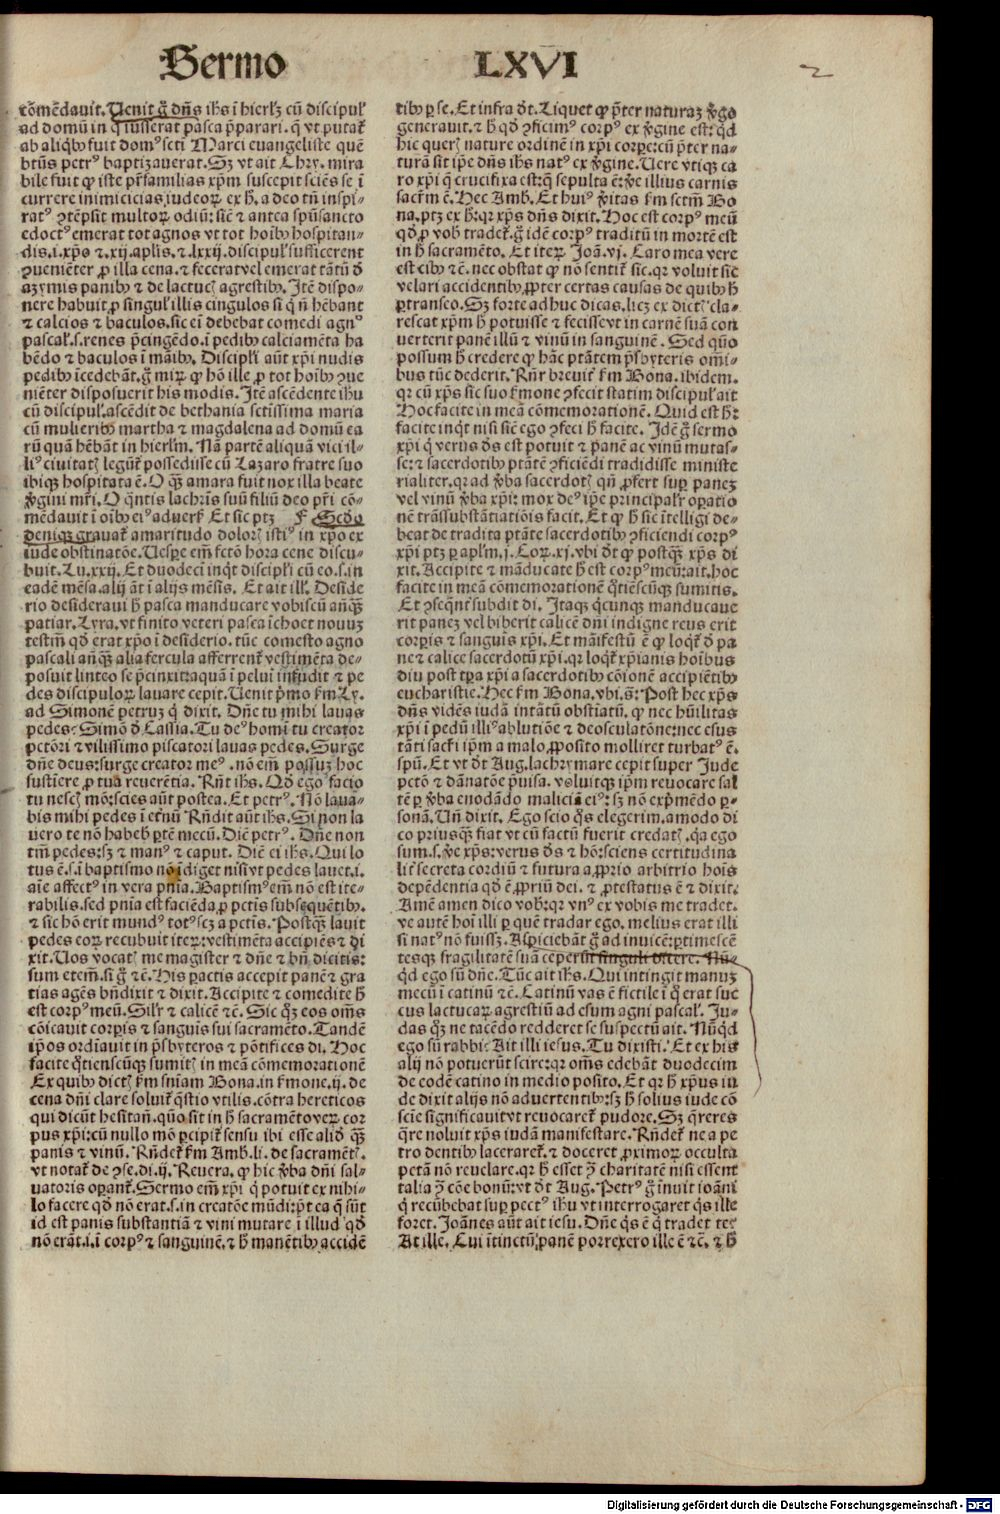 Sermo LXVI
2
cōmēdauit. Uenit g̊ dn̄s ih̄s ī hierlꝫ cū discipuľ
ad domū in q̄ iusserat pasca p̄parari. q̄ vt putať
ab aliqͥbꝰ fuit domꝰ scti Marci euangeliste quē
btūs petrꝰ baptizauerat. Sꝫ vt ait Chry. mira
bile fuit ꝙ iste pr̄familias xp̄m suscepit sciēs se ī
currere inimicicias iudeoꝝ ex ħ. a deo tn̄ inspi-
ratꝰ ꝯtēpsit multoꝝ odiū: sicē ⁊ antea spūsancto
edoctꝰ emerat tot agnos vt tot hoībꝰ hospitan-
dis. i. xp̄s ⁊ .xij. apľis. ⁊ .lxxij. discipuľ sufficerent
ꝯueniēter ꝓ illa cena. ⁊ fecerat vel emerat tātū ð
azymis panibꝰ ⁊ de lactucꝭ agrestibꝰ. Itē dispo-
nere habuit ꝓ singuľ illis cingulos si q̄ n̄ hēbant
⁊ calcios ⁊ baculos. sic ei debebat comedi agnꝰ
pascaľ. s. renes p̄cingēdo. ī pedibꝰ calciamēta ha
bēdo ⁊ baculos ī māibꝰ. Discipľi aūt xp̄i nudis
pedibꝰ īcedebāt. g̊ miꝝ ꝙ hō ille ꝓ tot hoībꝰ ꝯue
niēter disposuerit his modis. Itē ascēdente ih̄u
cū discipuľ. ascēdit de bethania sctissima maria
cū mulieribꝰ martha ⁊ magdalena ad domū ea
rū quā hēbāt in hierľm. Nā partē aliquā vici il-
liꝰ ciuitatꝭ legūť possedisse cū Lazaro fratre suo
ibiqꝫ hospitata ē. O qꝫ amara fuit nox illa beate
ꝟgini mr̄i. O q̄ntis lachrīs suū filiū deo pr̄i cō-
mēdauit ī oībꝰ eiꝰ aduerẜ Et sic ptꝫ F Sc̄do
deniqꝫ grauať amaritudo dolorꝭ istiꝰ in xp̄o ex
iude obstinatōe. Uesꝑe em̄ fctō hora cene discu-
buit. Lu. xxij. Et duodeci inqͭ discipľi cū eo. s. in
eadē mēsa. alij āt ī alijs mēsis. Et ait ill. Deside
rio desideraui ħ pasca manducare vobiscū añqꝫ
patiar. Lyra. vt finito veteri pasca īchoet nouuꝫ
testm̄ qð erat xp̄o ī desiderio. tūc comesto agno
pascali añqꝫ alia fercula afferrenť vestimēta de-
posuit linteo se p̄cinxit: aquā ī peluī infudit ⁊ pe
des discipuloꝝ lauare cepit. Uenit p̄mo ẜm Ly.
ad Simonē petruꝫ q̄ dixit. Dn̄e tu mihi lauas
pedes. Simō ð Cassia. Tu deꝰ homī tu creator
pctōri ⁊ vilissimo piscatori lauas pedes. Surge
dn̄e deus: surge creator meꝰ. nō em̄ possuꝫ hoc
sustiere ꝓ tua reuerētia. Rn̄t ih̄s. Qð ego facio
tu nescꝭ mō: scies aūt postea. Et petrꝰ. Nō laua-
bis mihi pedes ī et̄nū Rn̄dit aūt ih̄s. Si non la
uero te nō habebꝭ ꝑtē mecū. Dic̄ petrꝰ. Dn̄e non
tm̄ pedes: sꝫ ⁊ manꝰ ⁊ caput. Dic̄ ei ih̄s. Qui lo
tus ē. s. ī baptismo nō īdiget nisi vt pedes lauet. i.
aīe affectꝰ in vera pnīa. Baptismꝰ em̄ nō est ite-
rabilis. sed pnīa est faciēda ꝓ pctīs subsequētibꝰ.
⁊ sic hō erit mundꝰ totꝰ scꝫ a pctīs. Postqꝫ lauit
pedes eoꝝ recubuit iteꝝ: vestimēta accipiēs ⁊ di
xit. Uos vocatꝭ me magister ⁊ dn̄e ⁊ bn̄ dicitis:
sum etem̄. si g̊ ⁊ē. His ꝑactis accepit panē ⁊ gra
tias agēs bn̄dixit ⁊ dixit. Accipite ⁊ comedite ħ
est corpꝰ meū. Siľr ⁊ calicē ⁊ē. Sic qꝫ eos om̄s
cōicauit corꝑis ⁊ sanguīs sui sacramēto. Tandē
ip̄os ordīauit in p̄sbyteros ⁊ pōtifices di. Hoc
facite qͦtienscūqꝫ sumitꝭ in meā cōmemorationē
Ex quibꝰ dictꝭ ẜm sniam Bona. in ẜmone. ij. de
cena dn̄i clare soluiť q̄stio vtilis. cōtra hereticos
qui dicūt hesitan̄. quō sit in ħ sacramēto veꝝ cor
pus xp̄i: cū nullo mō ꝑcipiť sensu ibi esse aliđ qꝫ
panis ⁊ vinū. Rn̄deť ẜm Amb. li. de sacramētꝭ.
vt notať de ꝯse. di. ij. Reuera. ꝙ hic ꝟba dn̄i sal-
uatoris oꝑanť. Sermo em̄ xp̄i q̄ potuit ex nihi-
lo facere qð nō erat. s. in creatōe mūdi: p̄t ea q̄ sūt
id est panis substantiā ⁊ vini mutare ī illud qð
nō erāt. i. ī corpꝰ ⁊ sanguinē. ⁊ ħ manētibꝰ accidē
tibꝰ ꝑ se. Et infra dt̄. Liquet ꝙ p̄ter naturaꝫ ꝟgo
generauit. ⁊ ħ qð ꝯficimꝰ corpꝰ ex ꝟgine est: qͥd
hic querꝭ nature ordinē in xp̄i corꝑe: cū p̄ter na-
turā sit ip̄e dn̄s ih̄s natꝰ ex ꝟgine. Uere vtiqꝫ ca
ro xp̄i q̄ crucifixa est: q̄ sepulta ē: ꝟe illius carnis
sacr̄m ē. Hec Amb. Et huiꝰ ꝟitas ẜm sctm̄ Bo
na. ptꝫ ex ħ: qr xp̄s dn̄s dixit. Hoc est corpꝰ meū
qð ꝓ vobꝭ tradeť. g̊ idē corpꝰ traditū in mortē est
in ħ sacramēto. Et iteꝝ Joā. vj. Caro mea vere
est cibꝰ ⁊ē. nec obstat ꝙ nō sentiť sic. qr voluit sic
velari accidentibꝰ ꝓpter certas causas de quibꝰ ħ
ꝑtranseo. Sꝫ forte adhuc dicas. licꝫ ex dictꝭ cla-
rescat xp̄m ħ potuisse ⁊ fecisse vt in carnē suā con
uerterit panē illū ⁊ vinū in sanguinē. Sed quō
possum ħ credere ꝙ hāc ptātem p̄sbyteris om̄i-
bus tūc dederit. Rn̄r breuiť ẜm Bona. ibidem.
qr cū xp̄s sic suo ẜmone ꝯfecit statim discipuľ ait
Hoc facite in meā cōmemorationē. Quid est ħ:
facite inqͭ nisi sicē ego ꝯfeci ħ facite. Idē g̊ sermo
xp̄i q̄ verus ðs est potuit ⁊ panē ac vinū mutas-
se: ⁊ sacerdotibꝰ ptātē ꝯficiēdi tradidisse ministe
rialiter. qr ad ꝟba sacerdotꝭ qn̄ ꝓfert suꝑ paneꝫ
vel vinū ꝟba xp̄i: mox deꝰ ip̄e principaľr oꝑatio
nē trāssubstātiatiōis facit. Et ꝙ ħ sic ītelligi de-
beat de tradita ptāte sacerdotibꝰ ꝯficiendi corpꝰ
xp̄i ptꝫ ꝑ apľm. j. Coꝝ. xj. vbi dt̄ ꝙ postqꝫ xp̄s di
xit. Accipite ⁊ māducate ħ est corpꝰ meū: ait. hoc
facite in meā cōmemorationē qͦtiēscūqꝫ sumitis.
Et ꝯseqn̄t subdit di. Itaqꝫ qͥcunqꝫ manducaue
rit paneꝫ vel biberit calicē dn̄i indigne reus erit
corꝑis ⁊ sanguīs xp̄i. Et māifestū ē ꝙ loqͥť ð pa
ne ⁊ calice sacerdotū xp̄i. qr loqͥť xp̄ianis hoībus
diu post tꝑa xp̄i a sacerdotibꝰ cōionē accipiētibꝰ
eucharistie. Hec ẜm Bona. vbi. s̄. Post hec xp̄s
dn̄s vidēs iudā intātū obstīatū. ꝙ nec hūilitas
xp̄i ī pedū illiꝰ ablutiōe ⁊ deosculatōne: nec esus
tāti sacr̄i ip̄m a malo ꝓposito molliret turbatꝰ ē.
spū. Et vt dt̄ Aug. lachrymare cepit super Jude
pctō ⁊ dānatōe p̄uisa. voluitqꝫ ip̄m reuocare sal
tē ꝑ ꝟba enodādo maliciā eiꝰ: sꝫ nō exp̄mēdo ꝑ-
sonā. Un̄ dixit. Ego scio qͦs elegerim. amodo di
co priusqꝫ fiat vt cū factū fuerit credatꝭ. qͥa ego
sum. s. ꝟe xp̄s: verus ðs ⁊ hō: sciens certitudina
liť secreta cordiū ⁊ futura a ꝓprio arbitrio hoīs
depēdentia qð ē ꝓpriū dei. ⁊ ꝓtestatus ē ⁊ dixit.
Amē amen dico vobꝭ: qr vnꝰ ex vobis me tradet.
ve autē hoī illi ꝑ quē tradar ego. melius erat illi
si natꝰ nō fuissꝫ. Aspiciebāt g̊ ad inuicē: ꝑtimescē
tesqꝫ fragilitatē suā ceperūt singuli dicere. Nū-
qͥd ego sū dn̄e. Tūc ait ih̄s. Qui intingit manuꝫ
mecū ī catinū ⁊ē. Catinū vas ē fictile ī q̄ erat suc
cus lactucaꝝ agrestiū ad esum agni pascaľ. Ju-
das qꝫ ne tacēdo redderet se suspectū ait. Nūqͥd
ego sū rabbi: Ait illi iesus. Tu dixisti. Et ex his
alij nō potuerūt scire: qr om̄s edebāt duodecim
de eodē catino in medio posito. Et qr ħ xp̄us iu
de dixit alijs nō aduertentibꝰ: sꝫ ħ solius iude cō
scīe significauit vt reuocareť pudore. Sꝫ q̄reres
q̄re noluit xp̄s iudā manifestare. Rn̄deť ne a pe
tro dentibꝰ laceratareť. ⁊ doceret ꝓximoꝝ occulta
pctā nō reuelare. qr ħ esset ꝯ charitatē nisi essent
talia ꝯ cōe bonū: vt dt̄ Aug. Petrꝰ g̊ īnuit ioāni
q̄ recūbebat suꝑ pectꝰ ih̄u vt interrogaret qͥs ille
foret. Joānes aūt ait iesu. Dn̄e qͥs ē q̄ tradet te:
At ille. Cui ītinctū panē porrexero ille ē ⁊ē. ⁊ ħ
Digitalisierung gefördert durch die Deutsche Forschungsgemeinschaft - DFG